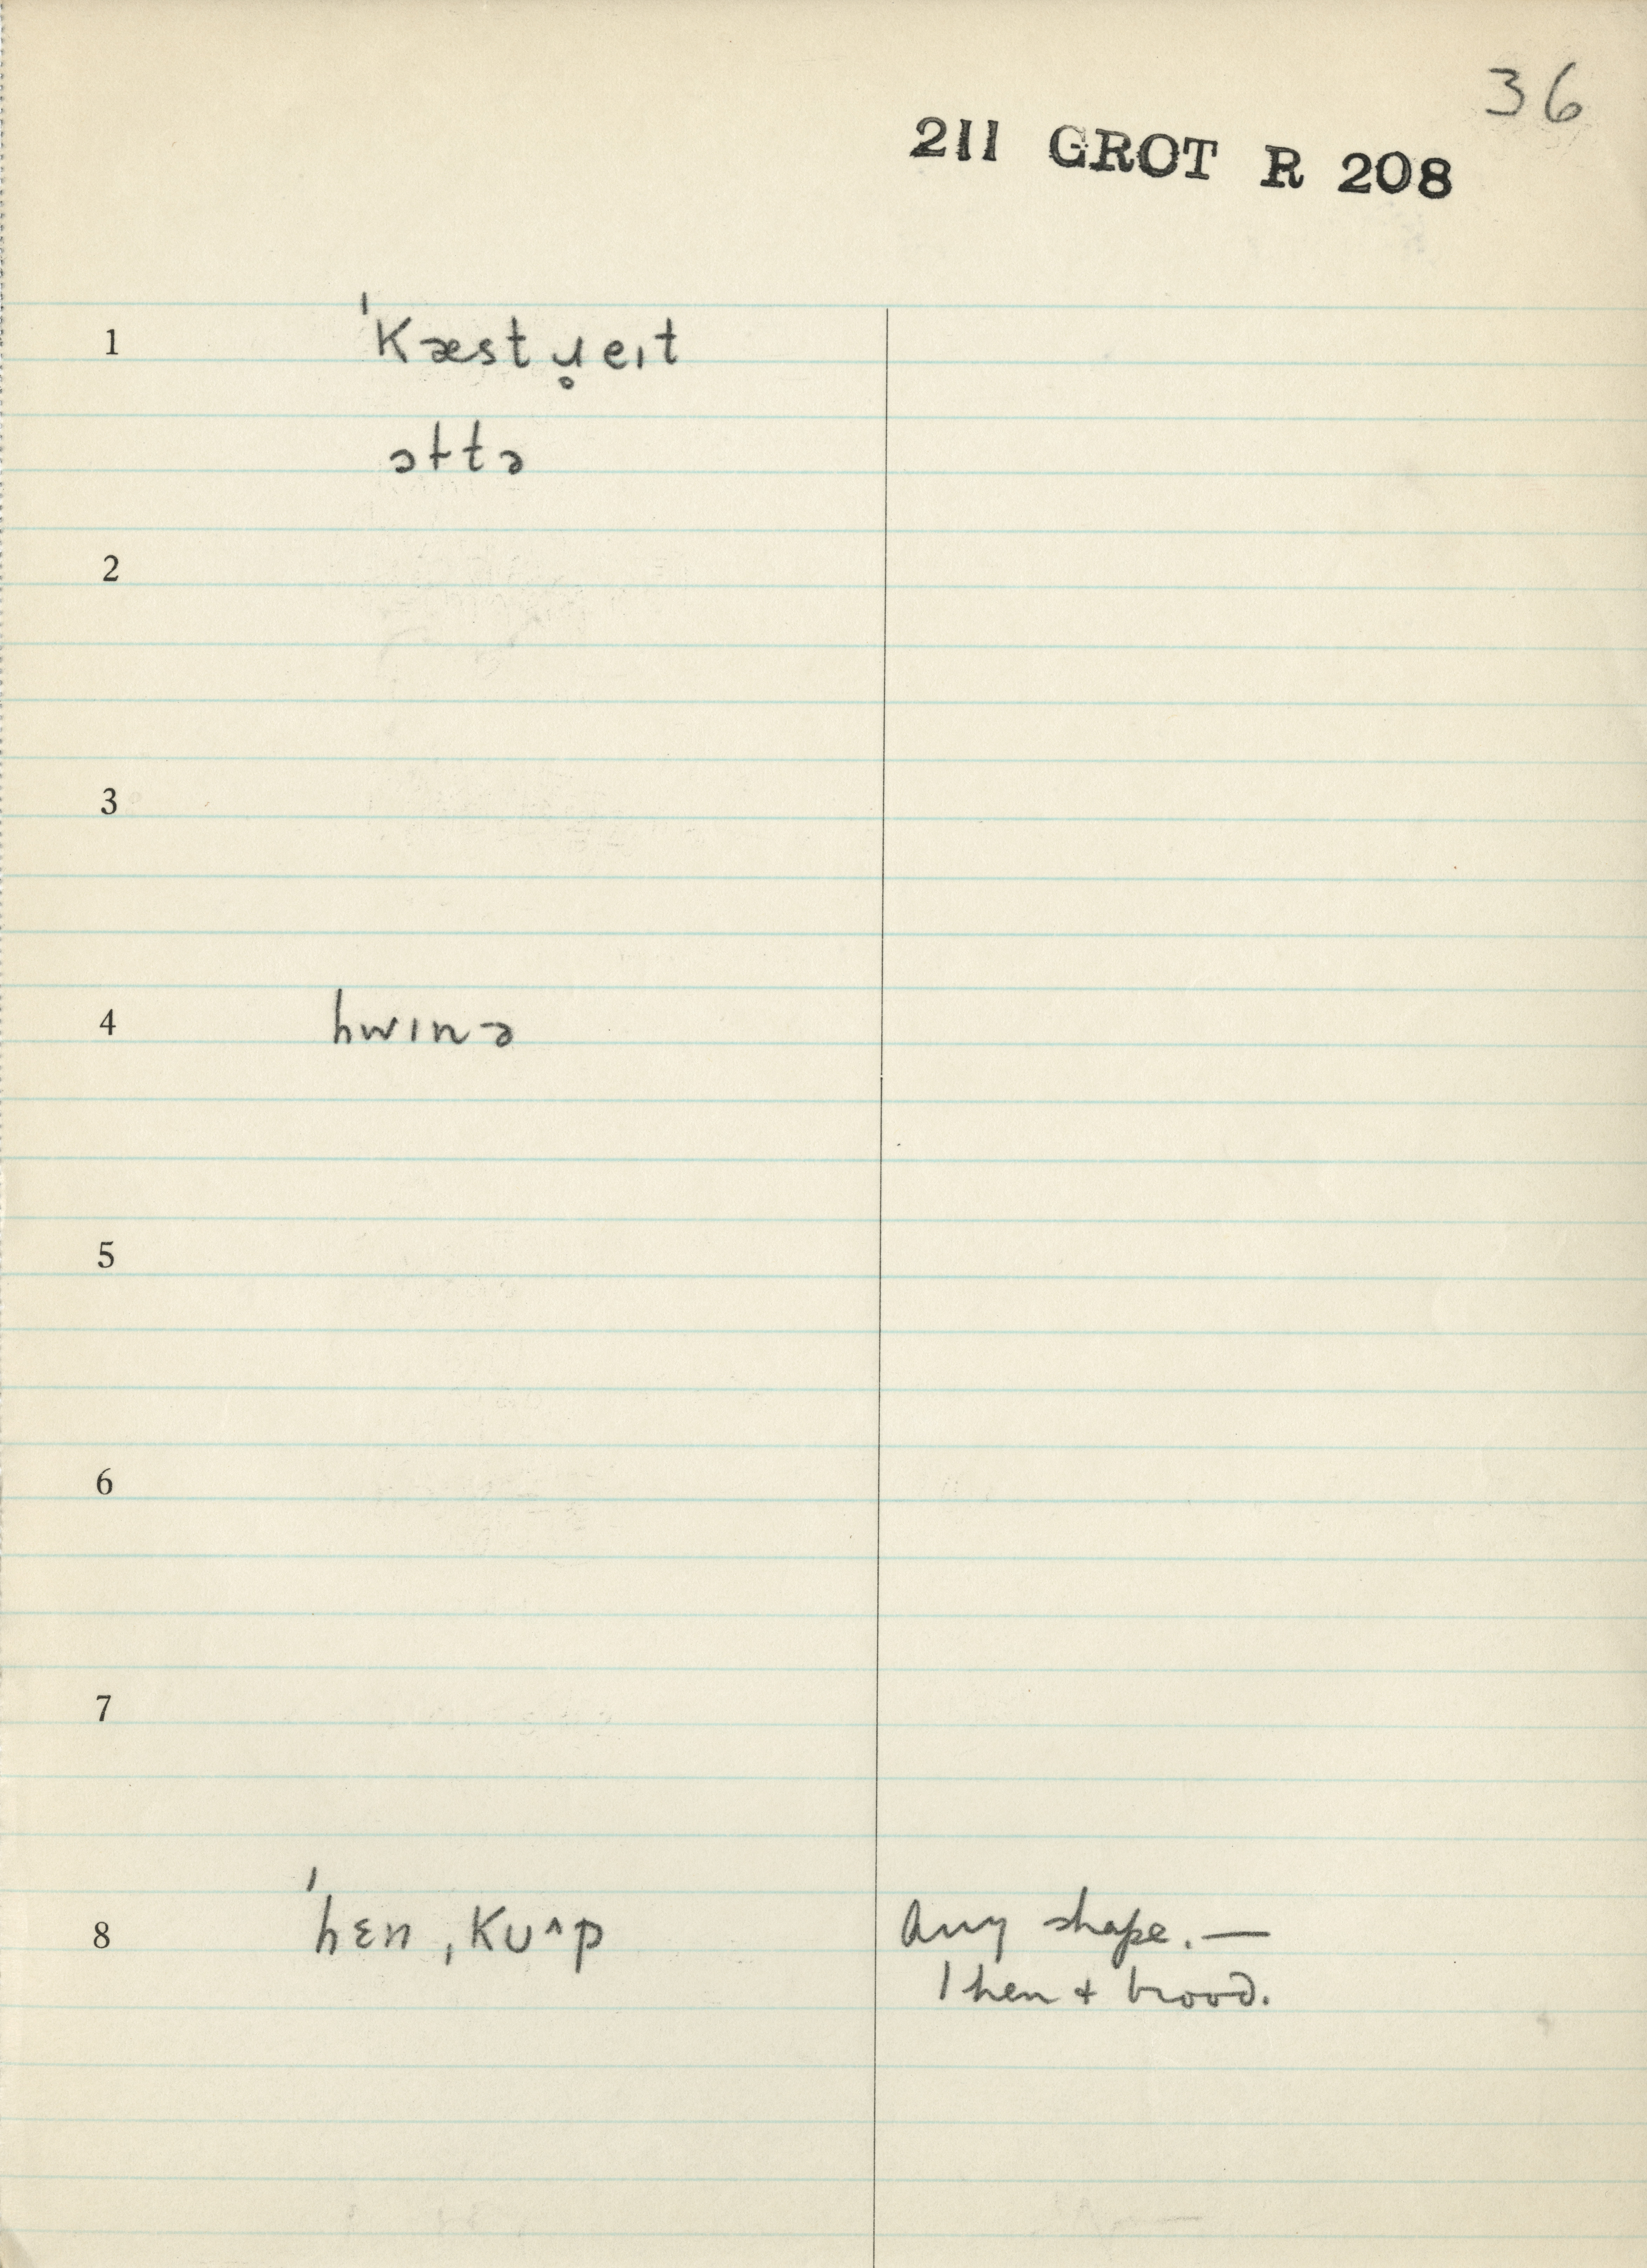 36
211 GROT R 208
1 ˈkæstɹ̥eɪt
əɫtə
2
3
4 hwɪnə
5
6
7
8 ˈhɛn ˌkʊ^p Any shape. —
1 hen + brood.